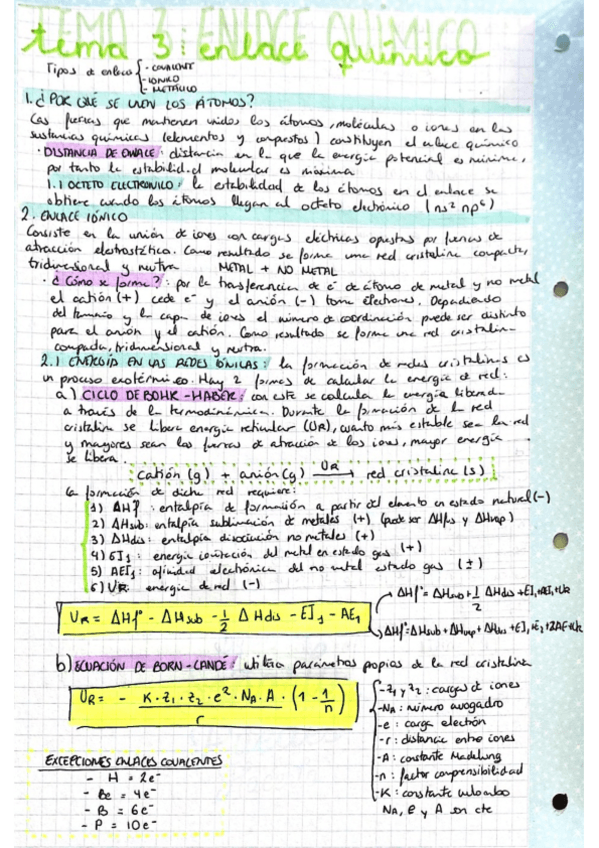 TEMA 3: ENLACE QUÍMICO
tema 3: enlace químico
Tipos de enlace
- COVALENTE
- IÓNICO
- METÁLICO
1. ¿POR QUÉ SE UNEN LOS ÁTOMOS?
Las fuerzas que mantienen unidos los átomos, moléculas o iones en las
sustancias químicas (elementos y compuestos) constituyen el enlace químico
· DISTANCIA DE ENLACE: distancia en la que la energía potencial es mínima,
por tanto la estabilidad molecular es máxima
1.1 OCTETO ELECTRÓNICO: la estabilidad de los átomos en el enlace se
obtiene cuando los átomos llegan al octeto electrónico (ns² np⁶)
2. ENLACE IÓNICO
Consiste en la unión de iones con cargas eléctricas opuestas por fuerzas de
atracción electrostática. Como resultado se forma una red cristalina compacta,
tridimensional y neutra METAL + NO METAL
· ¿Cómo se forma?: por la transferencia de e⁻ de átomo de metal y no metal
el catión (+) cede e⁻ y el anión (-) toma electrones. Dependiendo
del tamaño y la capa de iones el número de coordinación puede ser distinto
para el anión y el catión. Como resultado se forma una red cristalina
compacta, tridimensional y neutra.
2.1 ENERGÍA EN LAS REDES IÓNICAS: la formación de redes cristalinas es
un proceso exotérmico. Hay 2 formas de calcular la energía de red:
a) CICLO DE BOHR-HABER: con este se calcula la energía liberada
a través de la termodinámica. Durante la formación de la red
cristalina se libera energía reticular (UR), cuanto más estable sea la red
y mayores sean las fuerzas de atracción de los iones, mayor energía
se libera.
catión (g) + anión (g) UR → red cristalina (s)
La formación de dicha red requiere:
1) ΔHf° : entalpía de formación a partir del elemento en estado natural (-)
2) ΔHsub: entalpía sublimación de metales (+) (puede ser ΔHfus y ΔHvap)
3) ΔHdis: entalpía disociación no metales (+)
4) EI₁ : energía ionización del metal en estado gas (+)
5) AE₁: afinidad electrónica del no metal estado gas (±)
6) UR: energía de red (-)
UR = ΔHf° - ΔHsub - 1/2 ΔHdis - EI₁ - AE₁
ΔHf° = ΔHsub + 1/2 ΔHdis + EI₁ + AE₁ + UR
ΔHf° = ΔHsub + ΔHvap + ΔHdis + EI₁ + EI₂ + 2AE + UR
b) ECUACIÓN DE BORN-LANDÉ: utiliza parámetros propios de la red cristalina
UR = - K · z₁ · z₂ · e² · NA · A · (1 - 1/n) / r
- z₁ y z₂ : cargas de iones
- NA : número avogadro
- e : carga electrón
- r : distancia entre iones
- A : constante Madelung
- n : factor compresibilidad
- K : constante coulombo
NA, e y A son cte
EXCEPCIONES ENLACES COVALENTES
- H = 2e⁻
- Be = 4e⁻
- B = 6e⁻
- P = 10e⁻